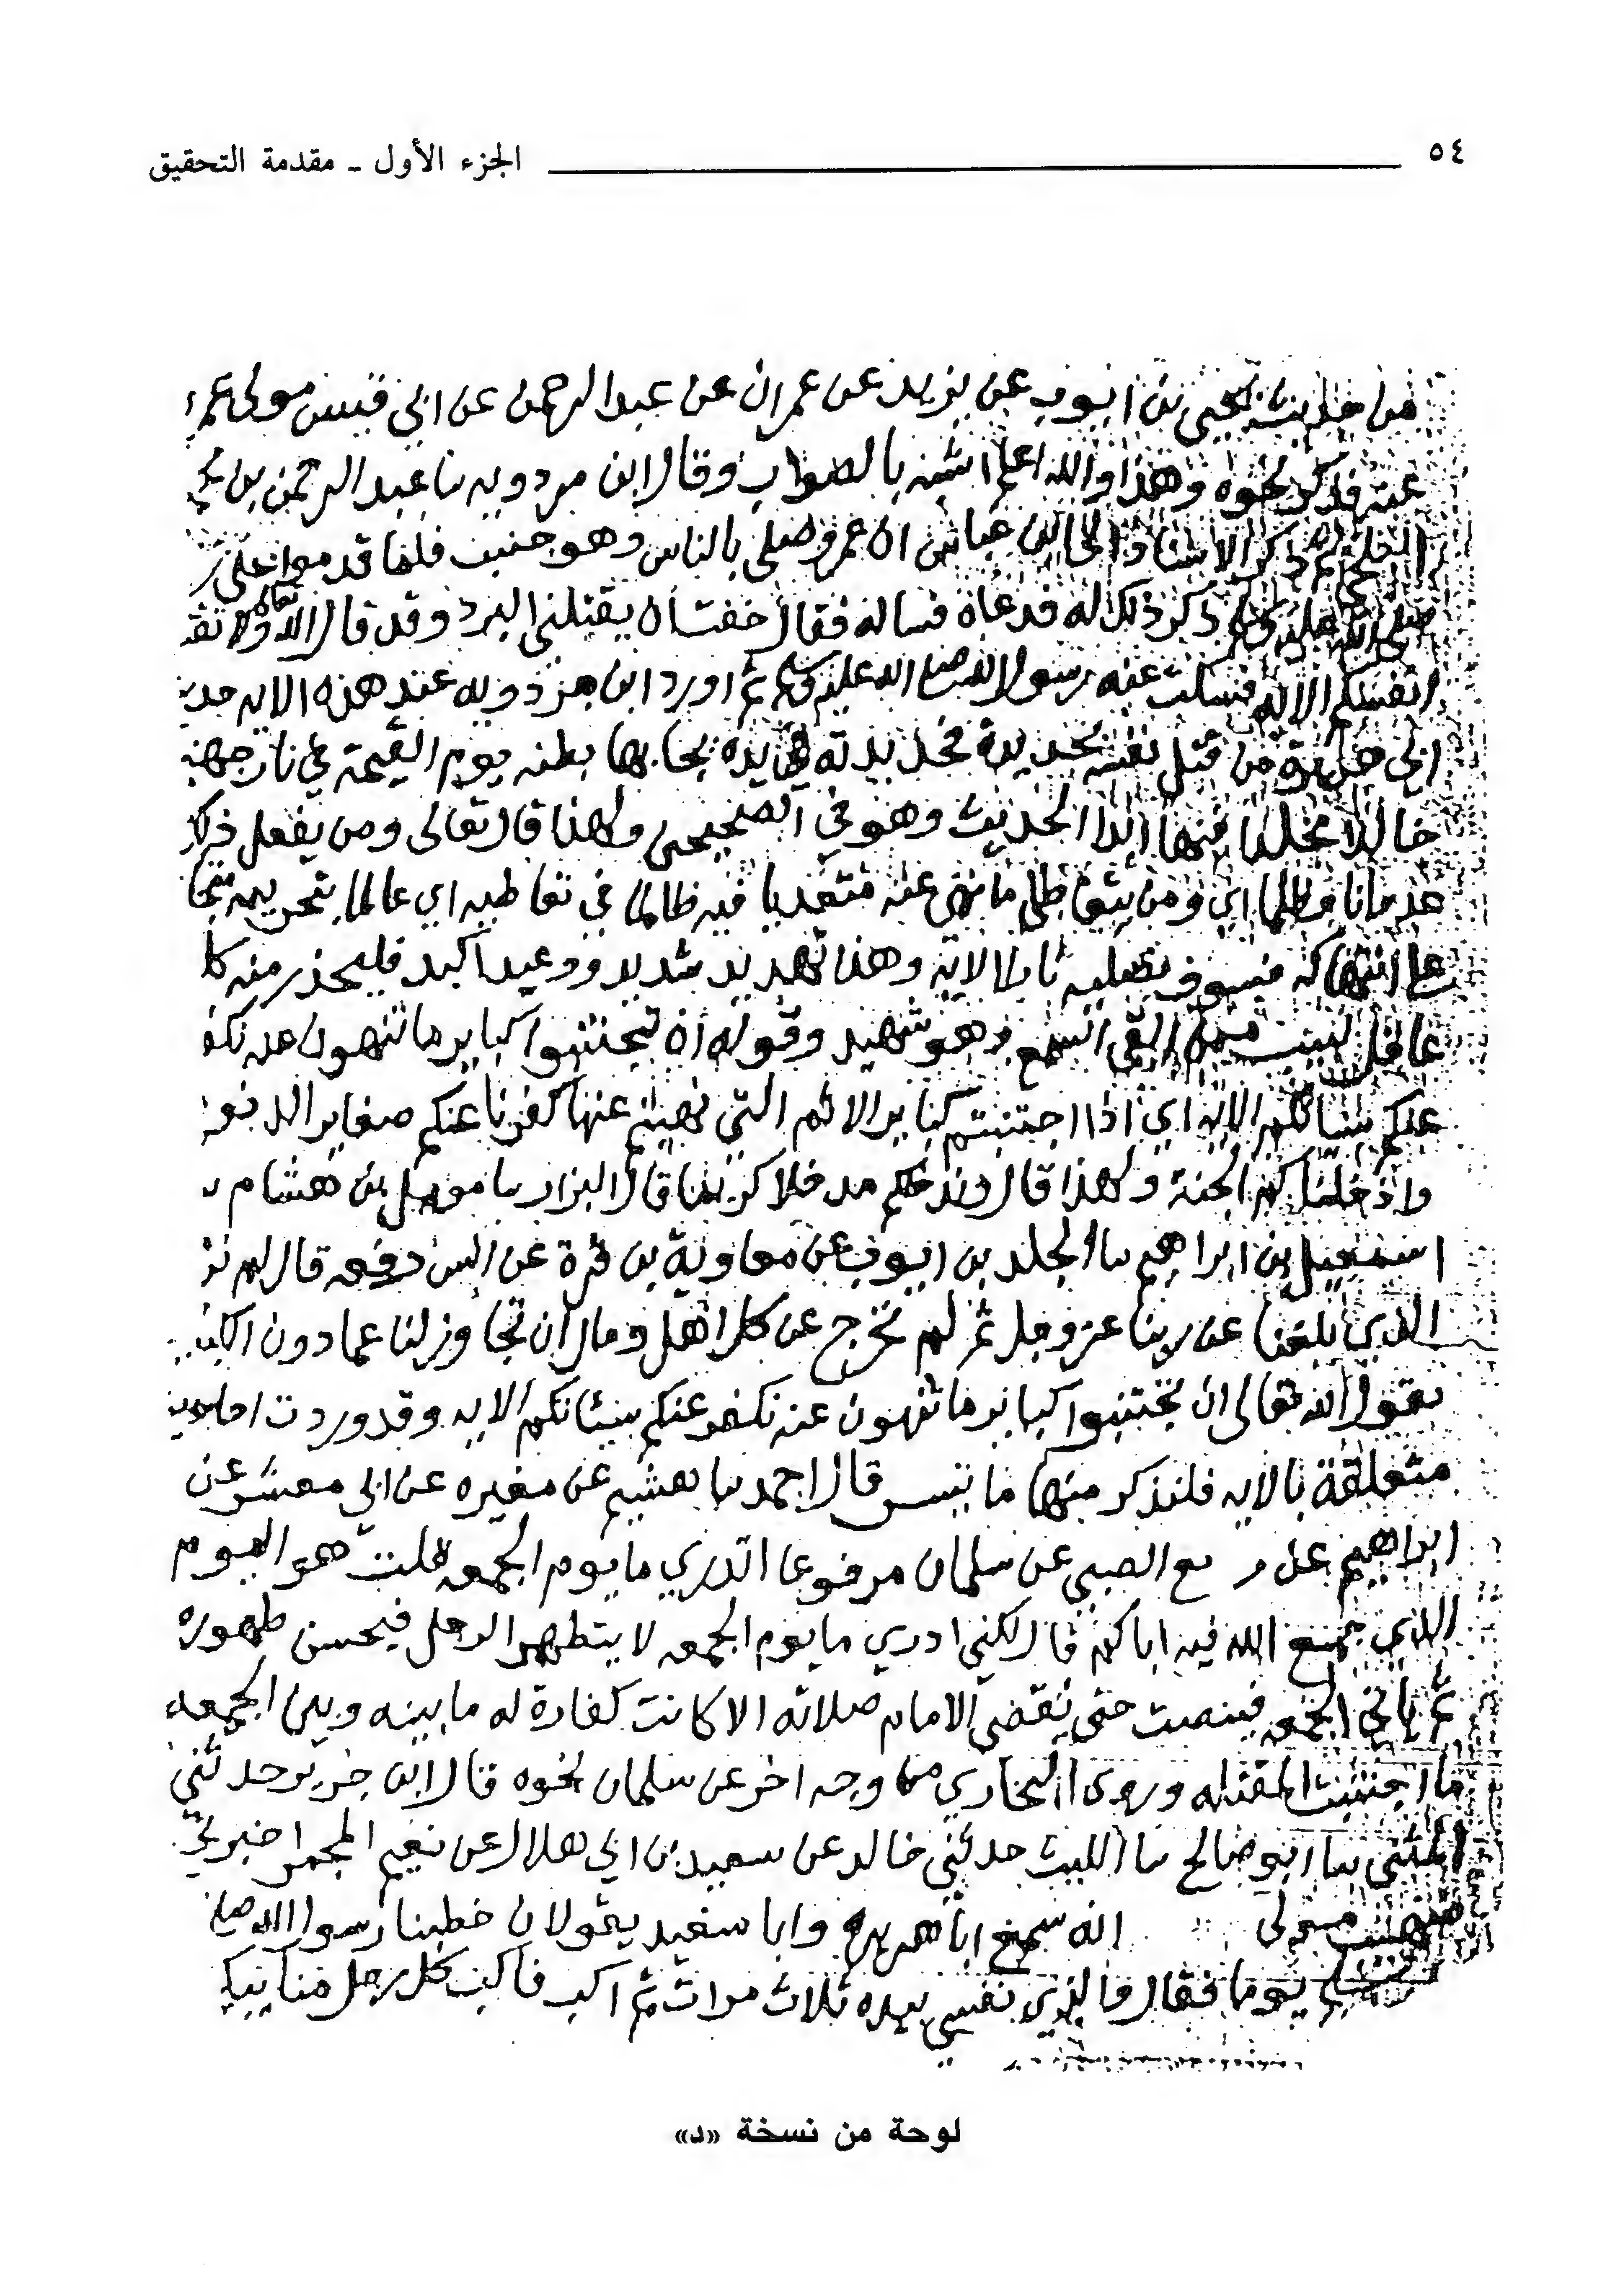 ٥٤ الجزء الأول - مقدمة التحقيق
من حديث يحيى بن ايوب عن يزيد عن عمران عن عبد الرحمن عن ابي قيس مولى عمر
عنه فذكر نحوه وهذا والله اعلم اشبه بالصواب وقال ابن مردويه نا عبد الرحمن بن
البلخي ثم ذكر الاسناد الى ابن عباس ان عمرو صلى بالناس وهو جنب فلما قدموا على
صلى الله عليه وسلم ذكر ذلك له فدعاه فساله فقال خفت ان يقتلني البرد وقد قال الله تعالى ولا تقتلوا
انفسكم الايه فسكت عنه رسول الله صلى الله عليه وسلم ثم اورد ابن مردويه عند هذه الايه
ابي هريرة من قتل نفسه بحديدة فحديدته في يده يجا بها بطنه يوم القيمة في نار جهنم
خالدا مخلدا فيها ابدا الحديث وهو في الصحيحين ولهذا قال تعالى ومن يفعل ذلك
عدوانا وظلما اي ومن يتعاطى ما نهى عنه متعديا فيه ظالما في تعاطيه اي عالما بتحريمه
على انتهاكه فسوف نصليه نارا الاية وهذا تهديد شديد ووعيد اكيد فليحذر منه كل
عاقل لبيب ممن القى السمع وهو شهيد وقوله ان تجتنبوا كباير ما تنهون عنه نكفر
عنكم سياتكم الايه اي اذا اجتنبتم كباير الاثم التي نهيتم عنها كفرنا عنكم صغاير الذنوب
وادخلناكم الجنة ولهذا قال وندخلكم مدخلا كريما قال البزار نا مومل بن هشام
اسمعيل بن ابراهيم نا الجلد بن ايوب عن معاوية بن قرة عن انس رفعه قال لم نر
الذي بلغنا عن ربنا عز وجل ثم لم نخرج عن كل اهل ومال ان تجاوز لنا عما دون الكباير
يقول الله تعالى ان تجتنبوا كباير ما تنهون عنه نكفر عنكم سيئاتكم الايه وقد وردت احاديث
متعلقة بالايه فلنذكر منها ما تيسر قال احمد نا هشيم عن مغيره عن ابي معشر عن
ابراهيم عن مر ‎ ‎ثع الضبي عن سلمان مرفوعا اتدري ما يوم الجمعه قلت هو اليوم
الذي جمع الله فيه اباكم قال لكني ادري ما يوم الجمعه لا يتطهر الرجل فيحسن طهوره
ثم ياتي الجمعه فينصت حتى يقضي الامام صلاته الا كانت كفارة له ما بينه وبين الجمعه
ما اجتنبت المقتله وروى البخاري من وجه اخر عن سلمان نحوه قال ابن جرير حدثني
المثنى نا ابو صالح نا الليث حدثني خالد عن سعيد بن ابي هلال عن نعيم المجمر اخبرني
صهيب مولى انه سمع ابا هريره وابا سعيد يقولان خطبنا رسول الله صلى
وسلم يوما فقال والذي نفسي بيده ثلاث مرات ثم اكب فاكب كل رجل منا يبكي
لوحة من نسخة «د»